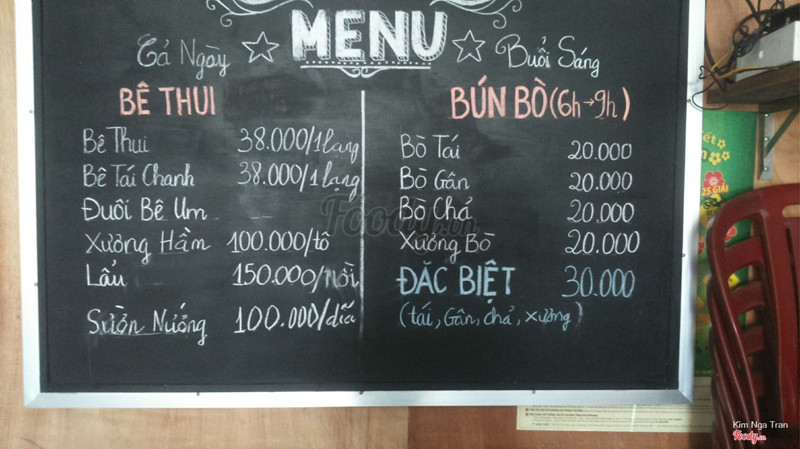 MENU
Cả Ngày
BÊ THUI
Bê Thui 38.000/1lạng
Bê Tái Chanh 38.000/1lạng
Đuôi Bê Um
Xương Hầm 100.000/tô
Lẩu 150.000/nồi
Sườn Nướng 100.000/dĩa
Buổi Sáng
BÚN BÒ (6h→9h)
Bò Tái 20.000
Bò Gân 20.000
Bò Chả 20.000
Xương Bò 20.000
ĐẶC BIỆT 30.000
(tái, Gân, chả, xương)
Foody.vn
25 GIẢI
Kim Nga Tran
Foody.vn